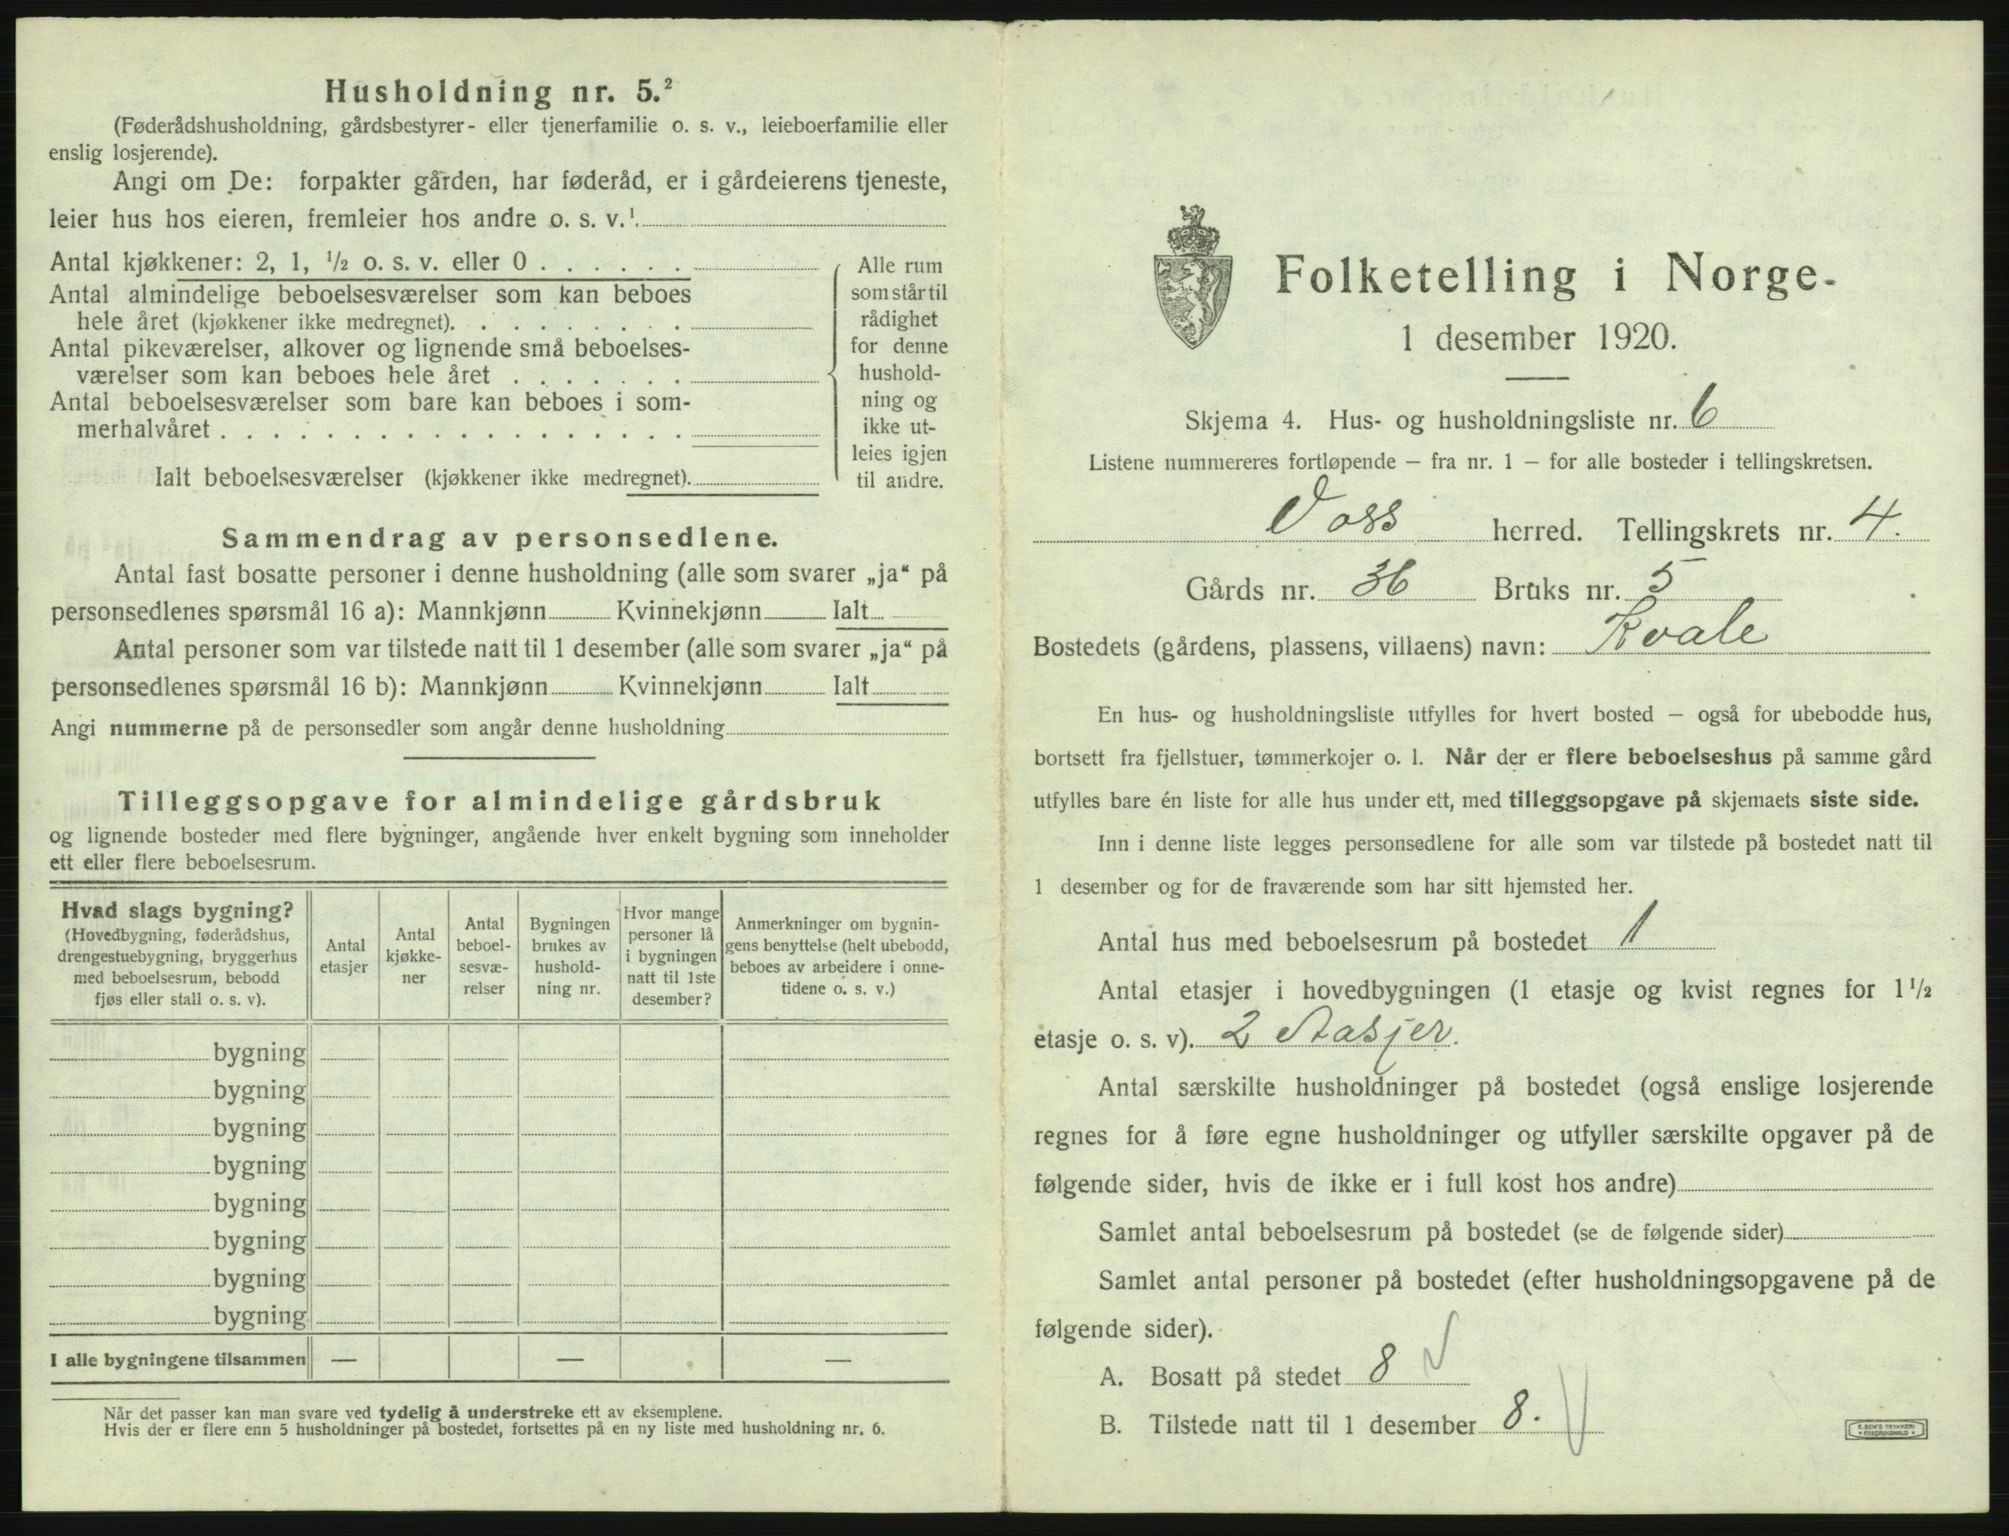 Husholdning nr. 5.²
(Føderådshusholdning, gårdsbestyrer- eller tjenerfamilie o. s. v., leieboerfamilie eller
enslig losjerende).
Angi om De: forpakter gården, har føderåd, er i gårdeierens tjeneste,
leier hus hos eieren, fremleier hos andre o. s. v.¹
Antal kjøkkener: 2, 1, ½ o. s. v. eller 0 . . . . . .
Antal almindelige beboelsesværelser som kan beboes
hele året (kjøkkener ikke medregnet). . . . . . . . .
Antal pikeværelser, alkover og lignende små beboelses-
værelser som kan beboes hele året . . . . . . .
Antal beboelsesværelser som bare kan beboes i som-
merhalvåret . . . . . . . . . . . . . . . . . .
Ialt beboelsesværelser (kjøkkener ikke medregnet).
Alle rum
som står til
rådighet
for denne
hushold-
ning og
ikke ut-
leies igjen
til andre.
Sammendrag av personsedlene.
Antal fast bosatte personer i denne husholdning (alle som svarer „ja“ på
personsedlenes spørsmål 16 a): Mannkjønn Kvinnekjønn Ialt
Antal personer som var tilstede natt til 1 desember (alle som svarer „ja“ på
personsedlenes spørsmål 16 b): Mannkjønn Kvinnekjønn Ialt
Angi nummerne på de personsedler som angår denne husholdning
Tilleggsopgave for almindelige gårdsbruk
og lignende bosteder med flere bygninger, angående hver enkelt bygning som inneholder
ett eller flere beboelsesrum.
Hvad slags bygning?
(Hovedbygning, føderådshus,
drengestuebygning, bryggerhus
med beboelsesrum, bebodd
fjøs eller stall o. s. v).
Antal
etasjer
Antal
kjøkke-
ner
Antal
beboel-
sesvæ-
relser
Bygningen
brukes av
hushold-
ning nr.
Hvor mange
personer lå
i bygningen
natt til 1ste
desember?
Anmerkninger om bygnin-
gens benyttelse (helt ubebodd,
beboes av arbeidere i onne-
tidene o. s. v.)
bygning
bygning
bygning
bygning
bygning
bygning
bygning
bygning
I alle bygningene tilsammen — — —
Når det passer kan man svare ved tydelig å understreke ett av eksemplene.
Hvis der er flere enn 5 husholdninger på bostedet, fortsettes på en ny liste med husholdning nr. 6.
Folketelling i Norge
1 desember 1920.
Skjema 4. Hus- og husholdningsliste nr. 6
Listene nummereres fortløpende – fra nr. 1 – for alle bosteder i tellingskretsen.
Voss herred. Tellingskrets nr. 4.
Gårds nr. 36 Bruks nr. 5
Bostedets (gårdens, plassens, villaens) navn: Kvale
En hus- og husholdningsliste utfylles for hvert bosted – også for ubebodde hus,
bortsett fra fjellstuer, tømmerkojer o. l. Når der er flere beboelseshus på samme gård
utfylles bare én liste for alle hus under ett, med tilleggsopgave på skjemaets siste side.
Inn i denne liste legges personsedlene for alle som var tilstede på bostedet natt til
1 desember og for de fraværende som har sitt hjemsted her.
Antal hus med beboelsesrum på bostedet 1
Antal etasjer i hovedbygningen (1 etasje og kvist regnes for 1½
etasje o. s. v). 2 etasjer.
Antal særskilte husholdninger på bostedet (også enslige losjerende
regnes for å føre egne husholdninger og utfyller særskilte opgaver på de
følgende sider, hvis de ikke er i full kost hos andre)
Samlet antal beboelsesrum på bostedet (se de følgende sider)
Samlet antal personer på bostedet (efter husholdningsopgavene på de
følgende sider).
A. Bosatt på stedet 8
B. Tilstede natt til 1 desember 8.
E. SEM'S TRYKKERI
FREDRIKSHALD